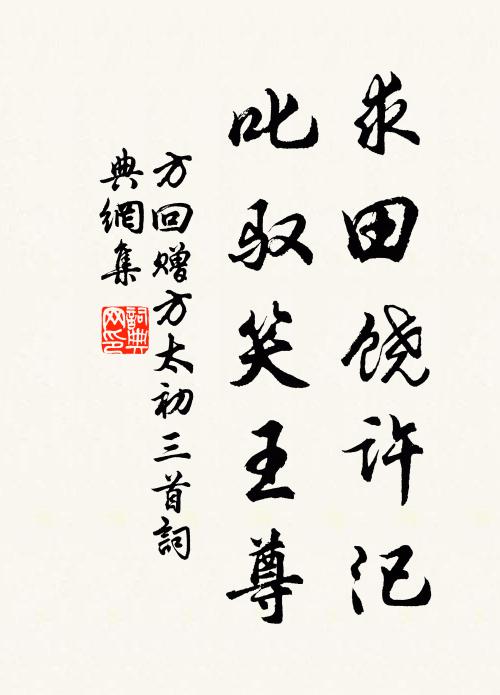 求田饶许汜
叱驭笑王尊
方回赠方太初三首詞
典網集
詞典网印